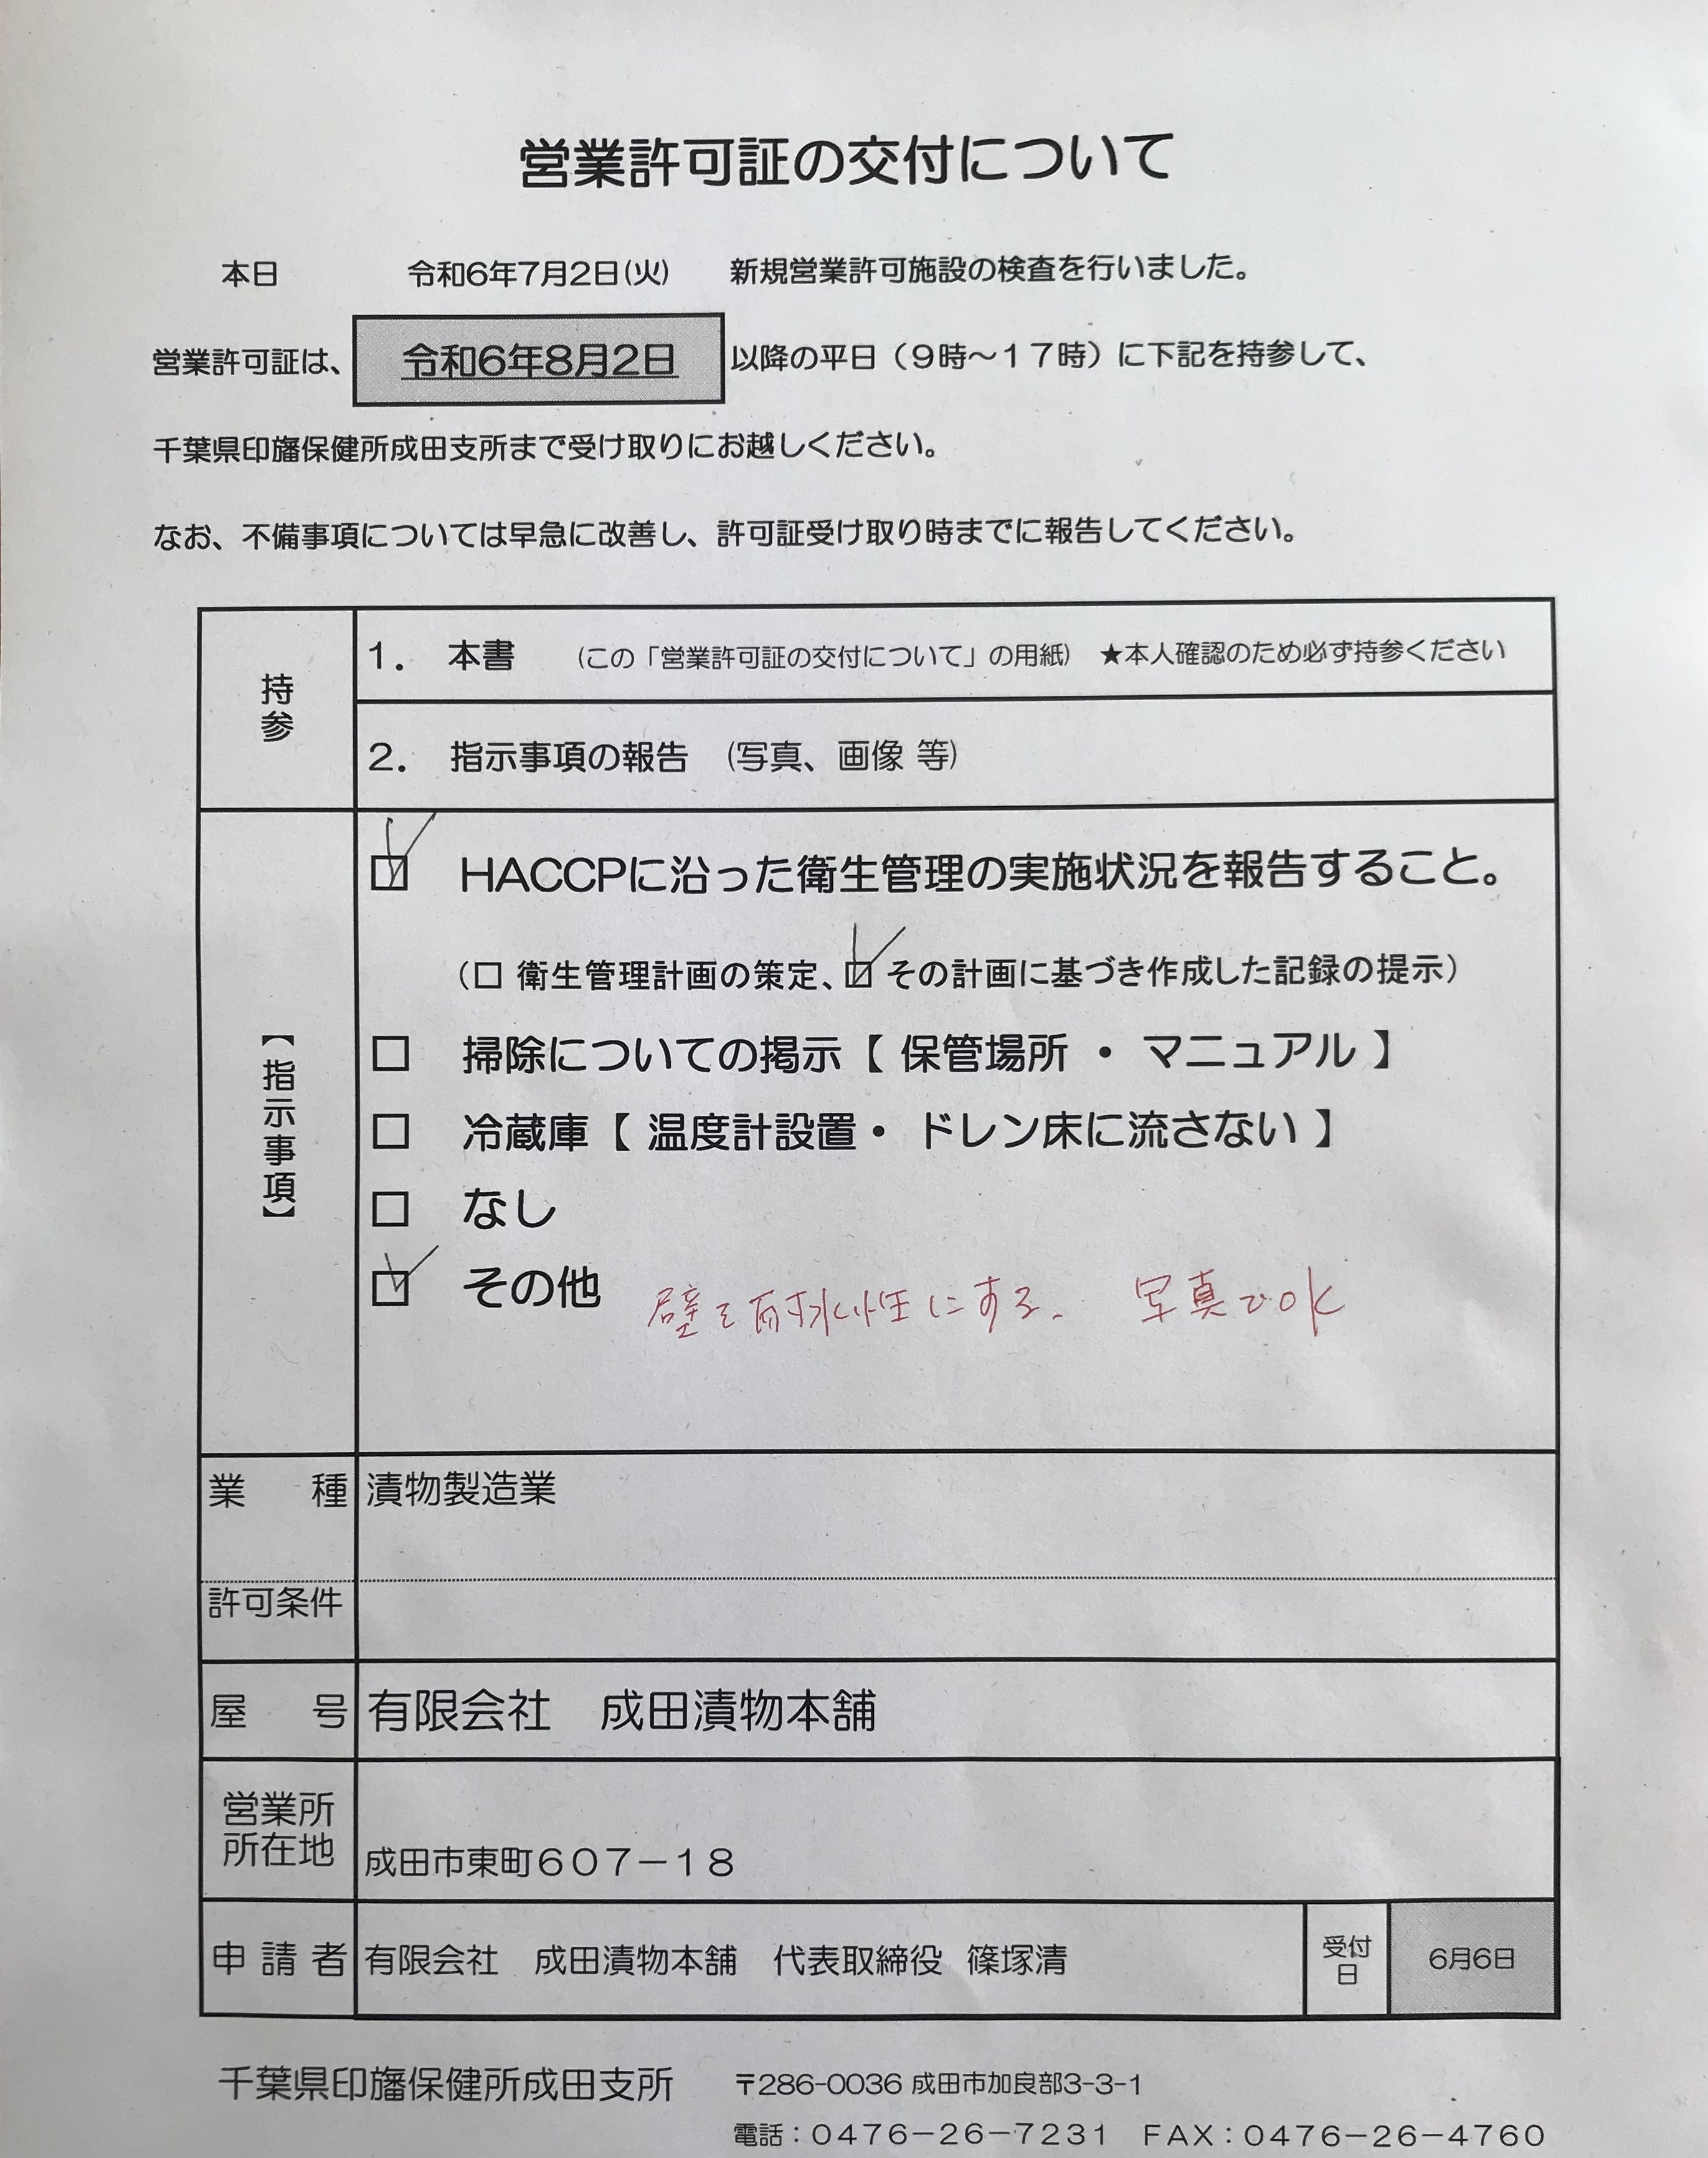 営業許可証の交付について
本日 令和6年7月2日(火) 新規営業許可施設の検査を行いました。
営業許可証は、 令和6年8月2日 以降の平日（9時～17時）に下記を持参して、
千葉県印旛保健所成田支所まで受け取りにお越しください。
なお、不備事項については早急に改善し、許可証受け取り時までに報告してください。
持参
1. 本書 (この「営業許可証の交付について」の用紙) ★本人確認のため必ず持参ください
2. 指示事項の報告 (写真、画像 等)
【指示事項】
☑ HACCPに沿った衛生管理の実施状況を報告すること。
(□ 衛生管理計画の策定、☑ その計画に基づき作成した記録の提示)
□ 掃除についての掲示【 保管場所 ・ マニュアル 】
□ 冷蔵庫【 温度計設置・ ドレン床に流さない 】
□ なし
☑ その他 壁を耐水性にする。 写真でOK
業種 漬物製造業
許可条件
屋号 有限会社 成田漬物本舗
営業所所在地 成田市東町607－18
申請者 有限会社 成田漬物本舗 代表取締役 篠塚清 受付日 6月6日
千葉県印旛保健所成田支所 〒286-0036 成田市加良部3-3-1
電話：0476－26－7231 FAX：0476－26－4760